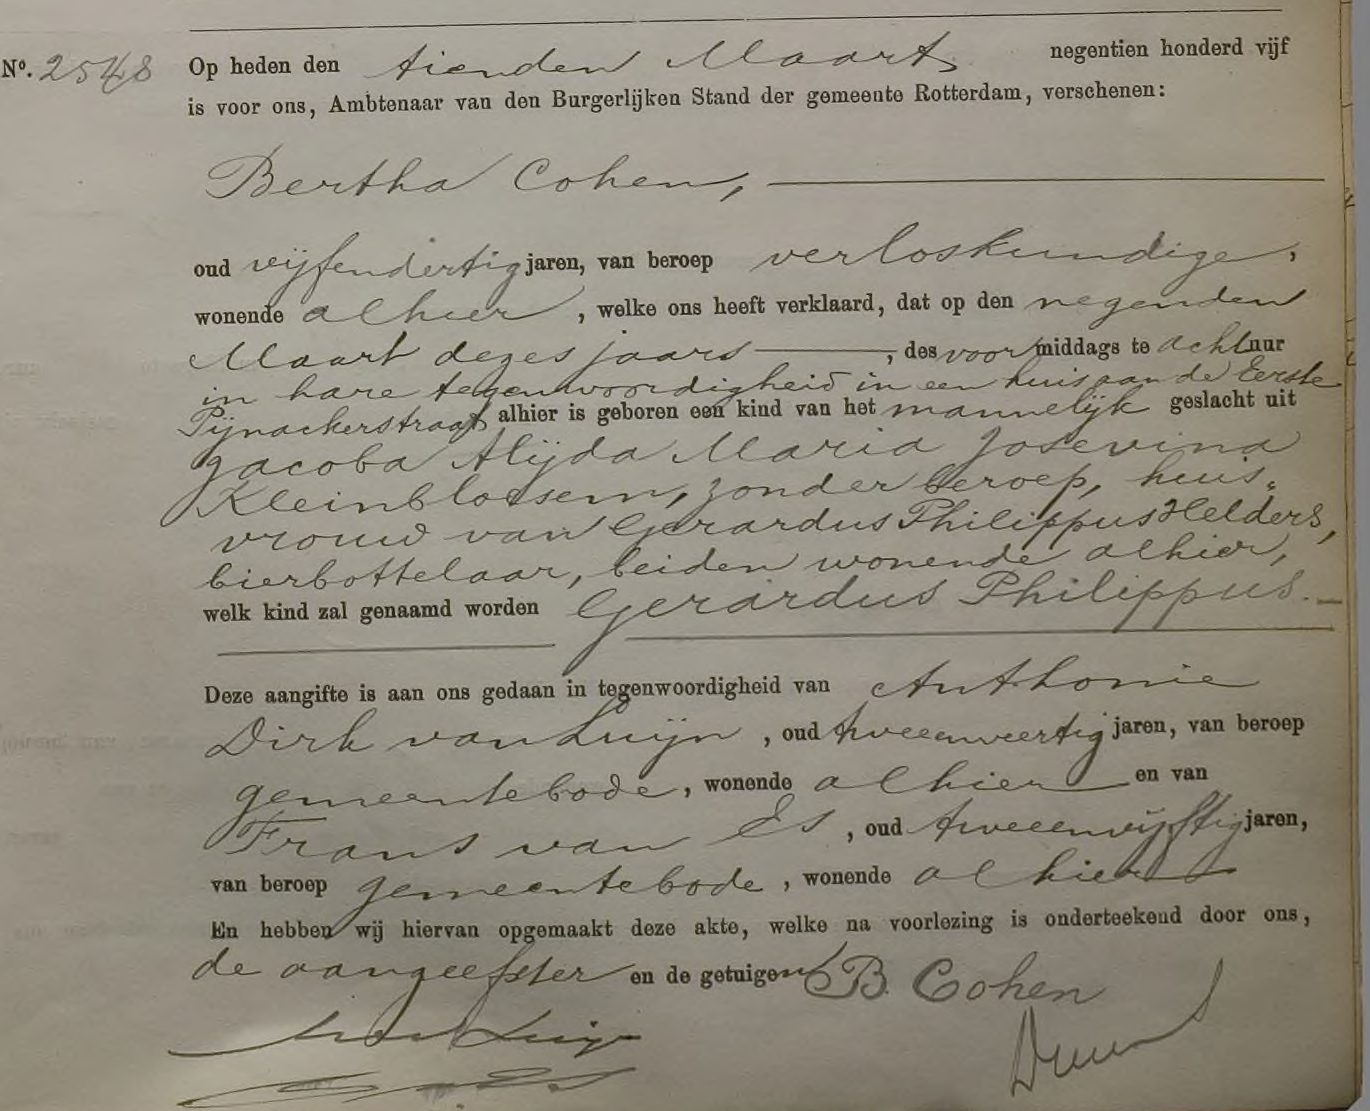 No. 2548 Op heden den tienden Maart negentien honderd vijf
is voor ons, Ambtenaar van den Burgerlijken Stand der gemeente Rotterdam, verschenen:
Bertha Cohen,
oud vijfendertig jaren, van beroep verloskundige,
wonende alhier, welke ons heeft verklaard, dat op den negenden
Maart dezes jaars, des voormiddags te acht uur
in hare tegenwoordigheid in een huis aan de Eerste
Pijnackerstraat alhier is geboren een kind van het mannelijk geslacht uit
Jacoba Alijda Maria Josevina
Kleinbloesem, zonder beroep, huis-
vrouw van Gerardus Philippus Helders,
bierbottelaar, beiden wonende alhier,
welk kind zal genaamd worden Gerardus Philippus.
Deze aangifte is aan ons gedaan in tegenwoordigheid van Anthonie
Dirk van Luijn, oud tweeenveertig jaren, van beroep
gemeentebode, wonende alhier en van
Frans van Es, oud tweeenvijftig jaren,
van beroep gemeentebode, wonende alhier
En hebben wij hiervan opgemaakt deze akte, welke na voorlezing is onderteekend door ons,
de aangeefster en de getuigen B. Cohen